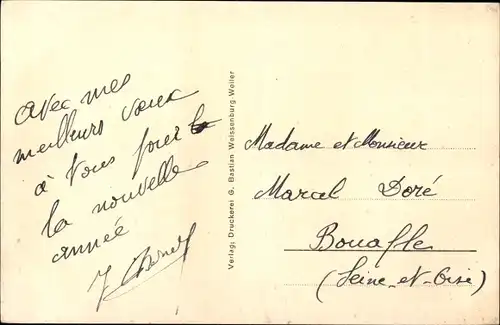 avec mes
meilleurs vœux
à vous pour
la nouvelle
année
Verlag: Druckerei G. Bastian Weissenburg Weiler
Madame et Monsieur
Marcel Doré
Bouafle
(Seine-et-Oise)